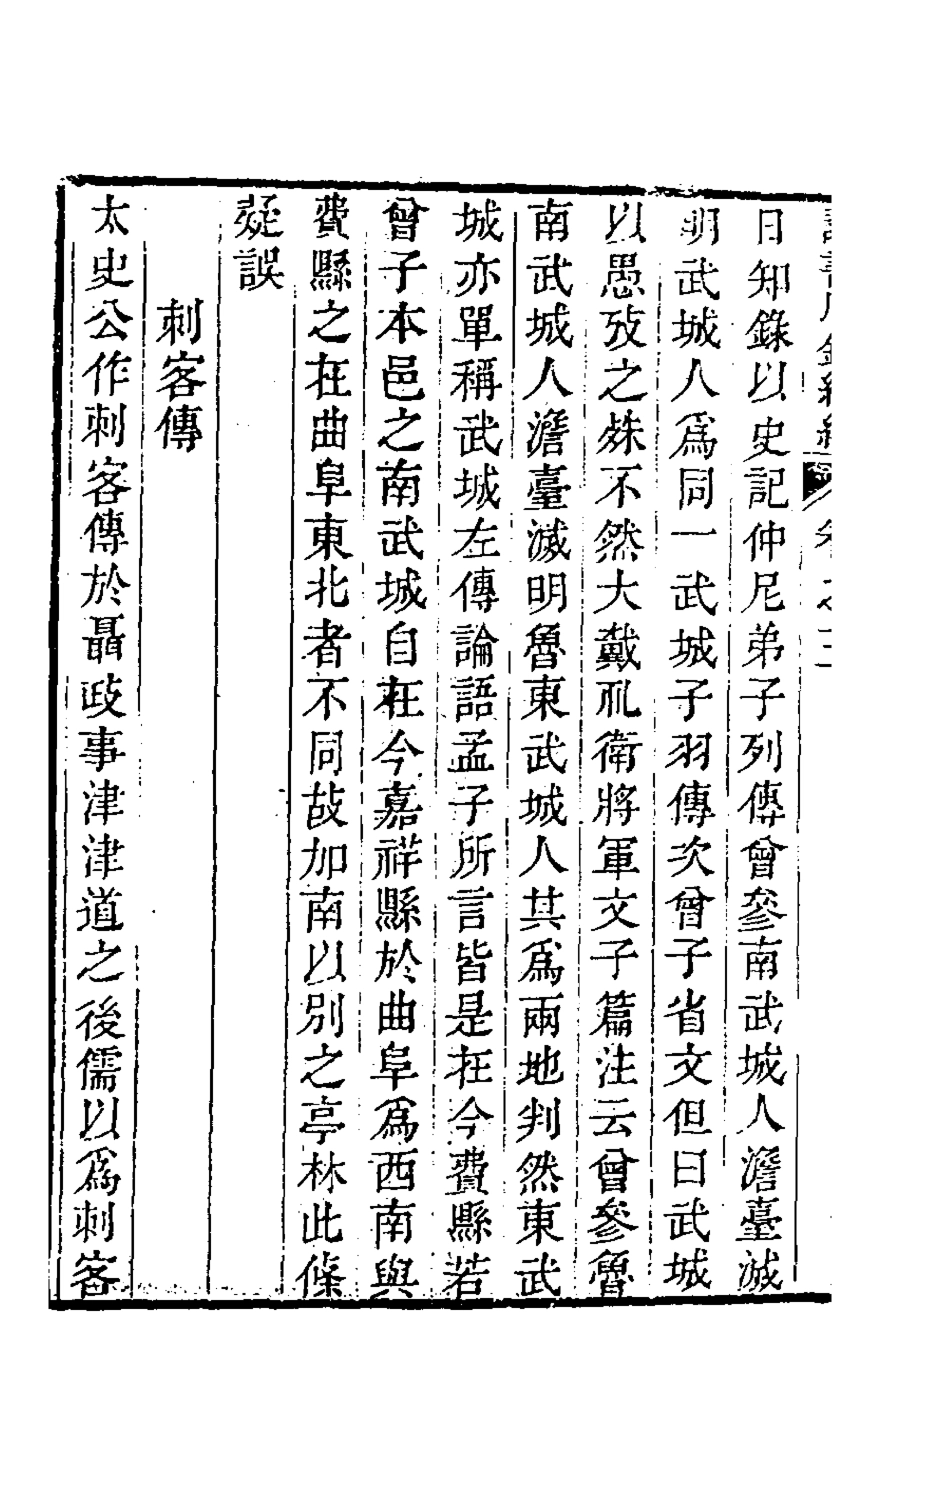 日知錄以史記仲尼弟子列傳曾參南武城人澹臺滅
明武城人爲同一武城子羽傳次曾子省文但曰武城
以愚攷之殊不然大戴礼衛將軍文子篇注云曾參魯
南武城人澹臺滅明魯東武城人其爲兩地判然東武
城亦單稱武城左傳論語孟子所言皆是在今費縣若
曾子本邑之南武城自在今嘉祥縣於曲阜爲西南與
費縣之在曲阜東北者不同故加南以別之亭林此條
疑誤
刺客傳
太史公作刺客傳於聶政事津津道之後儒以爲刺客